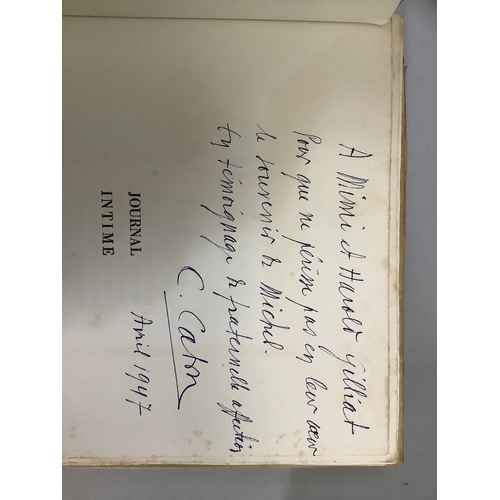 A Mimi et Harold Gilliat
Pour que ne périsse pas en leur cœur
le souvenir de Michel.
En témoignage de fraternelle affection
C. Caton
Avril 1947
JOURNAL
INTIME